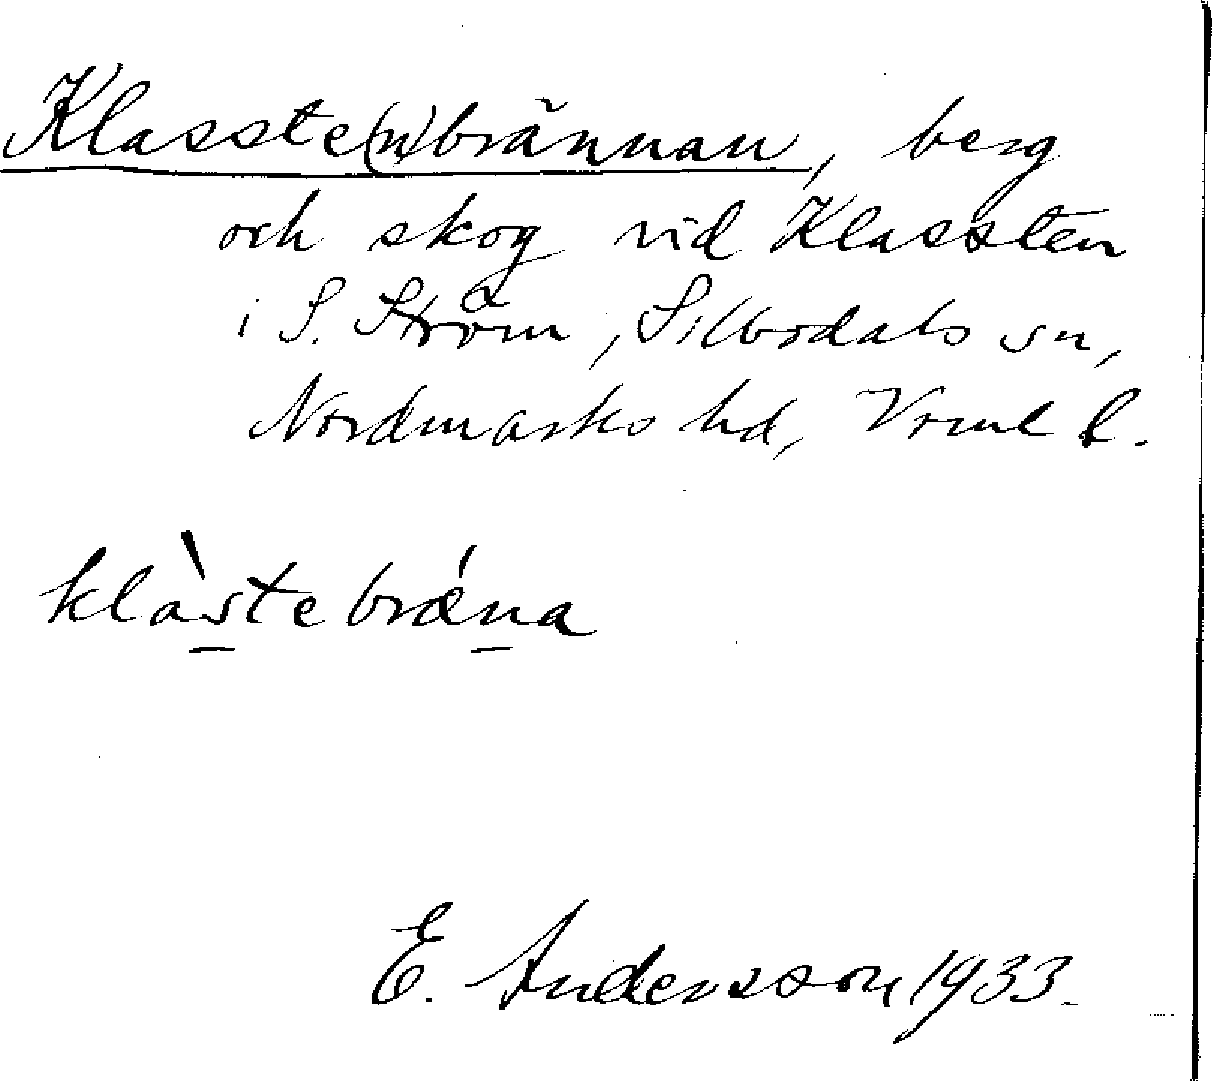 Klasste(n)brännan, berg
och skog vid Klassten
i S. Ström, Silbodals sn,
Nordmarks hd, Vrml l.
klàstebrǽna
E. Andersson 1933.